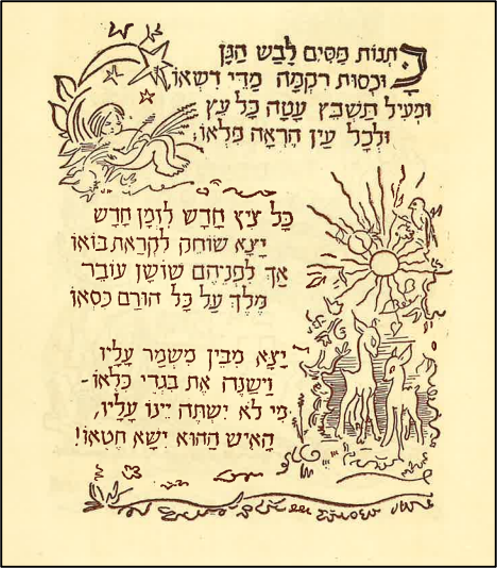 כָּתְנוֹת פַּסִּים לָבַשׁ הַגָּן
וּכְסוּת רִקְמָה מַדֵּי דִשְׁאוֹ,
וּמְעִיל תַּשְׁבֵּץ עָטָה כָל עֵץ
וּלְכָל עַיִן הֶרְאָה פִלְאוֹ,
כָּל צִיץ חָדָשׁ לִזְמַן חָדָשׁ
יָצָא שׂוֹחֵק לִקְרַאת בּוֹאוֹ
אַךְ לִפְנֵיהֶם שׁוֹשָׁן עוֹבֵר
מֶלֶךְ עַל כָּל הוּרַם כִּסְאוֹ
יָצָא מִבֵּין מִשְׁמַר עָלָיו
וַיְשַׁנֶּה אֶת בִּגְדֵי כִלְאוֹ-
מִי לֹא יִשְׁתֶּה יֵינוֹ עָלָיו,
הָאִישׁ הַהוּא יִשָּׂא חֶטְאוֹ!